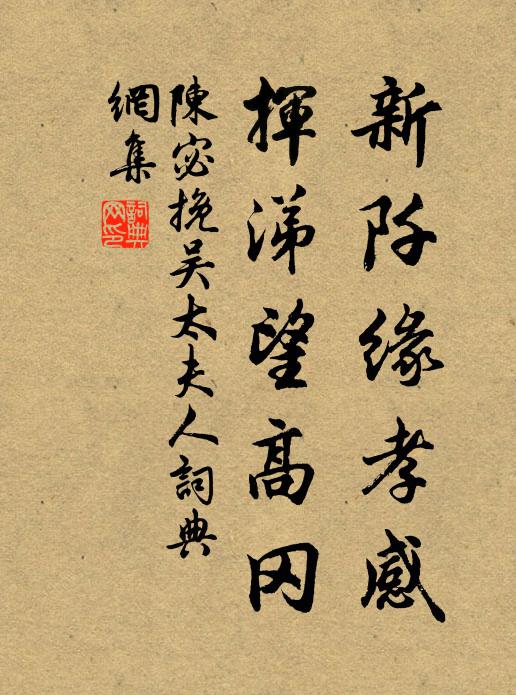 新阡緣孝感
揮涕望高冈
陳宓挽吴太夫人詞典
網集
詞典
网印